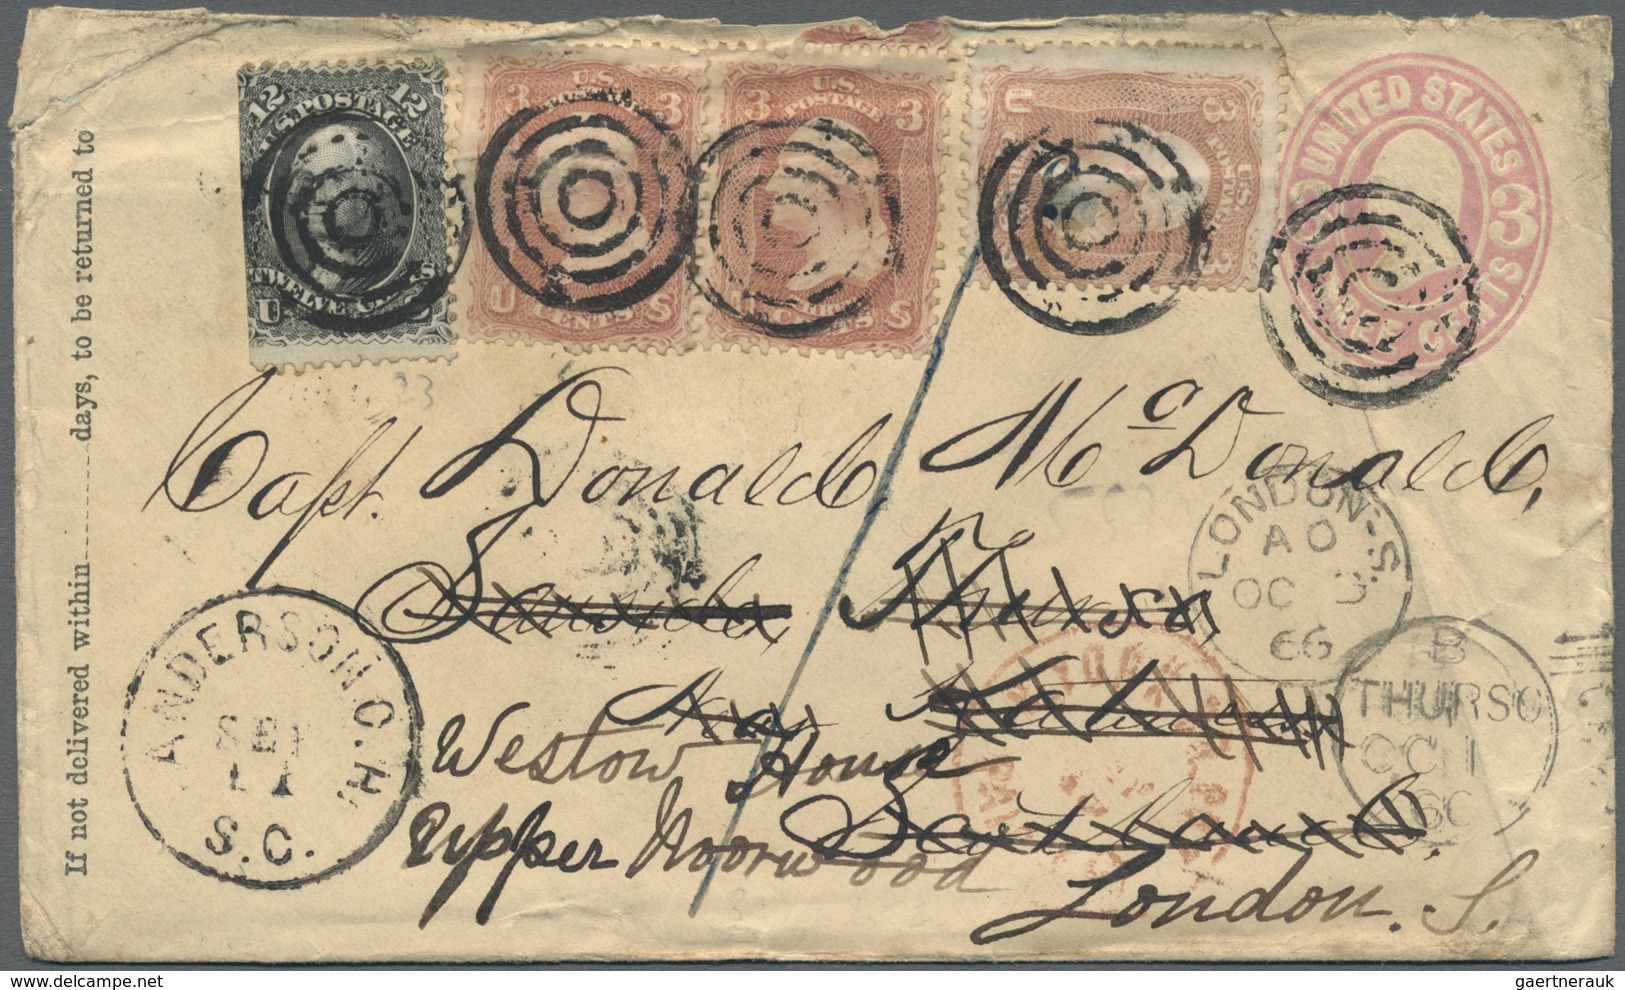 12 12
U.S. POSTAGE
TWELVE CENTS
U
3 3
U.S.
POSTAGE
U CENTS S
3 3
U.S.
POSTAGE
CENTS S
U
3 3
U.S.
POSTAGE
UNITED STATES
3
THREE CENTS
If not delivered within days, to be returned to
23
Capt. Donald McDonald,
Thurso,
Scotland.
Westow House
Upper Norwood
London. S.
ANDERSON C.H.
SEP
11
S.C.
LONDON-S.
AO
OC 3
66
B
THURSO
OC 1
66
gaertnerauk